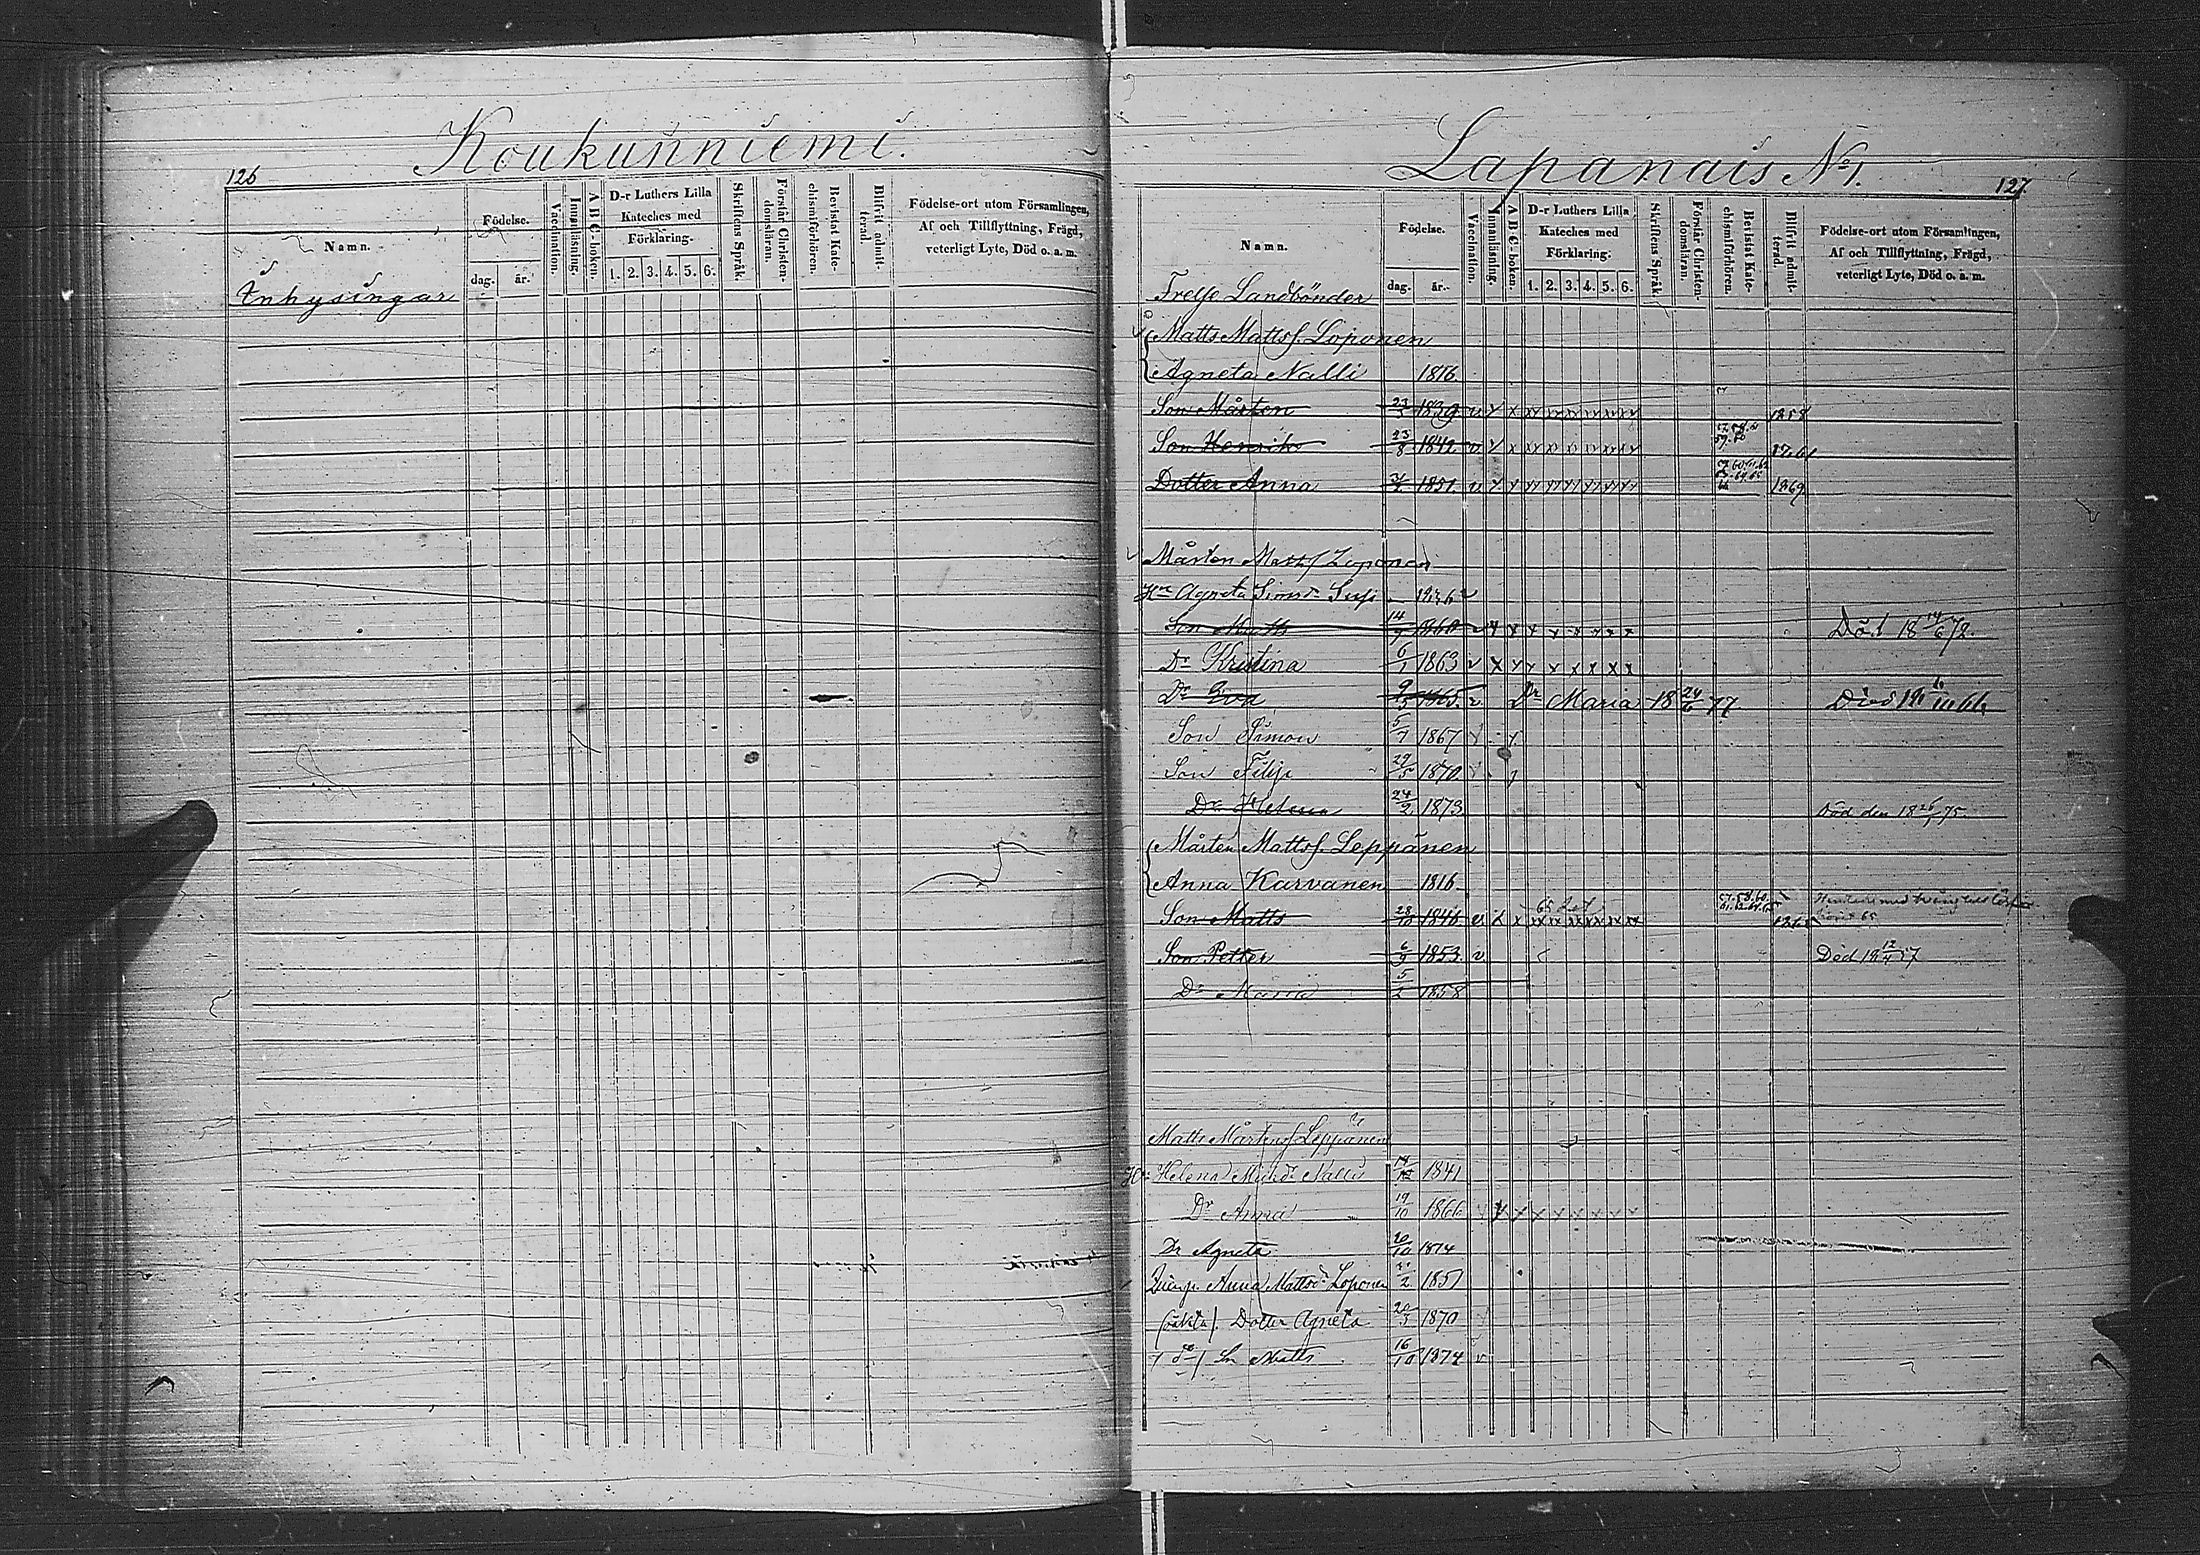 126
Koukunniemi.
Namn.
Födelse.
dag. år.
Vaccination.
Innanläsning.
A B C-boken.
D-r Luthers Lilla Kateches med Förklaring.
1. 2. 3. 4. 5. 6.
Skriftens Språk.
Förstår Christendomsläran.
Bevistat Katechismiförhören.
Blifvit admitterad.
Födelse-ort utom Församlingen,
Af och Tillflyttning, Frägd,
veterligt Lyte, Död o. a. m.
Inhysingar
Lapanais No 1.
127
Namn.
Födelse.
dag. år.
Vaccination.
Innanläsning.
A B C-boken.
D-r Luthers Lilla Kateches med Förklaring.
1. 2. 3. 4. 5. 6.
Skriftens Språk.
Förstår Christendomsläran.
Bevistat Katechismiförhören.
Blifvit admitterad.
Födelse-ort utom Församlingen,
Af och Tillflyttning, Frägd,
veterligt Lyte, Död o. a. m.
Frelse Landbönder
Matts Mattsf. Loponen
Agneta Nalli 1816.
Son Mårten 1839 v x x 1858
Son Henrik 23/8 1842 v x x
Dotter Anna 1851. v x x 1869
Mårten Matts Loponen
Hu Agneta Simsd. Susi
Son Matts 14/9 1860 v x x x x x x x x Död 18 14/6 72.
Dr Kristina 6/1 1863 v x x x x x x x x
Dr Eva 1865. v Dr Maria 18 24/6 77 Död
Son Simon 5/7 1867
Son Filip 29/5 1870
Dr Helena 24/2 1873. Död den 18 75.
Mårten Mattsf. Leppänen
Anna Karvanen 1816
Son Matts 28/10 1846. v x x
Son Petter 6/9 1853. v Död 18 12/4 57
Dr Maria 5/2 1858
Matts Mårtensf. Leppänen
Hu Helena Nalli 1841
Dr Anna 19/10 1866 x x x x x x x x
Dr Agneta 20/10 1874
Anna Mattsd. Loponen 1851
(oäkta). Dotter Agneta 1870
Sn Matts 16/10 1874 v